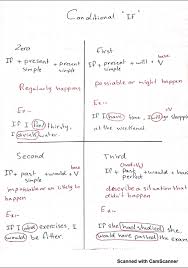 Conditional "IF"
Zero
IF + present + present
simple simple
Regularly happens
Ex..
If I
thirsty.
I drink water.
First
IF + present + will + V
simple base
possiable or might
happen
Ex..
If I have time, I will go
at the weekend
Second
IF + past + would + V
simple base
impossiable or an likely to
happen
Ex..
If I did exercises, I
would be fitter.
Third
IF + past + would + have
perfect
describe a situation that
didn't happen
Ex..
If she had studied she
would have passed the exam
Scanned with CamScanner